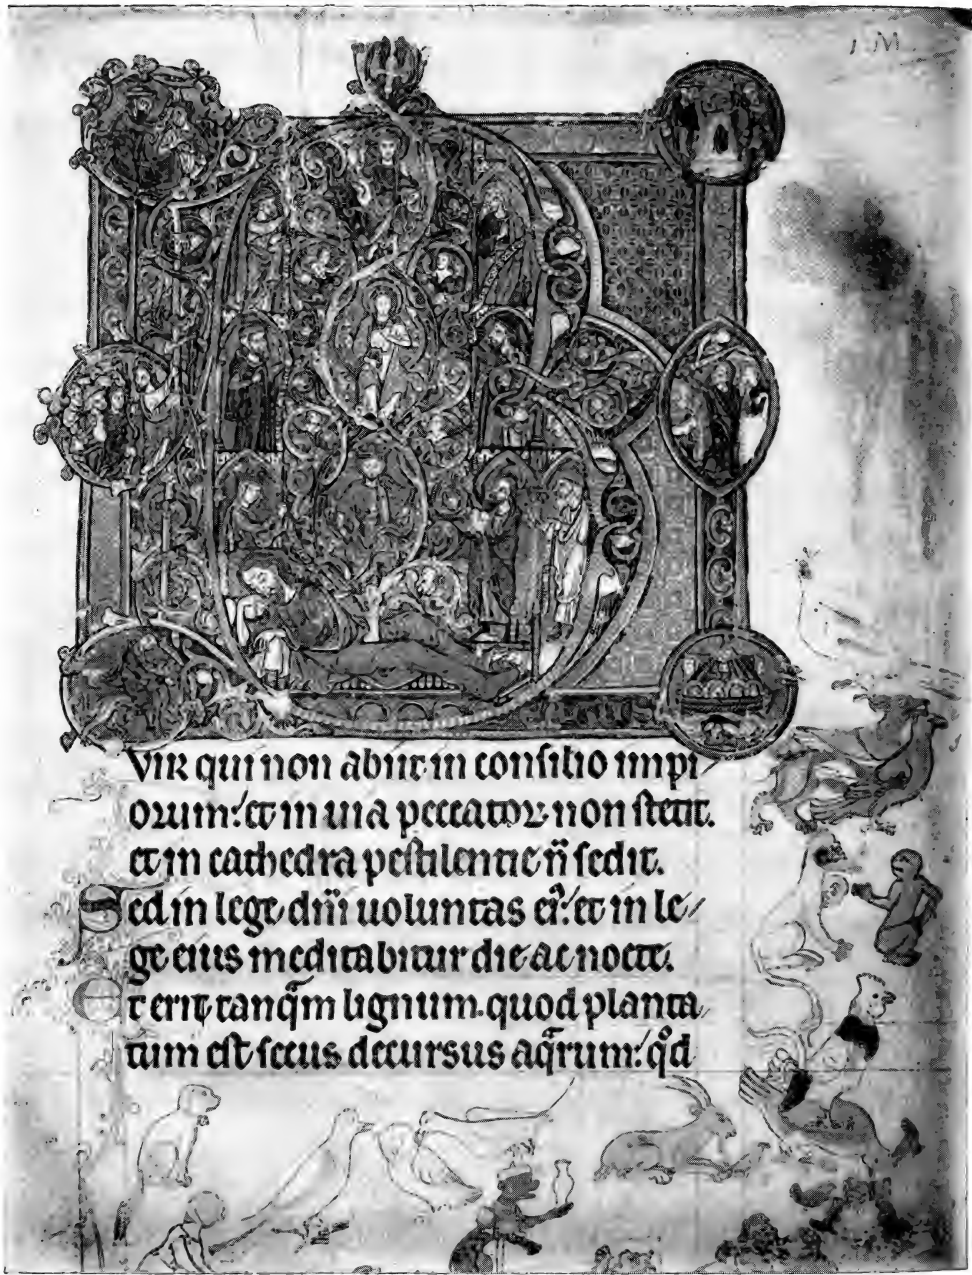 I M
VIR qui non abiit in conſilio impi
orum: et in uia peccatoꝝ non ſtetit.
et in cathedra peſtilentie n̄ ſedit.
Sed in lege dn̄i uoluntas ei᾽: et in le/
ge eius meditabitur die ac nocte.
Et erit tanq̄m lignum. quod planta/
tum eſt ſecus decursus aq̄rum: qͦd